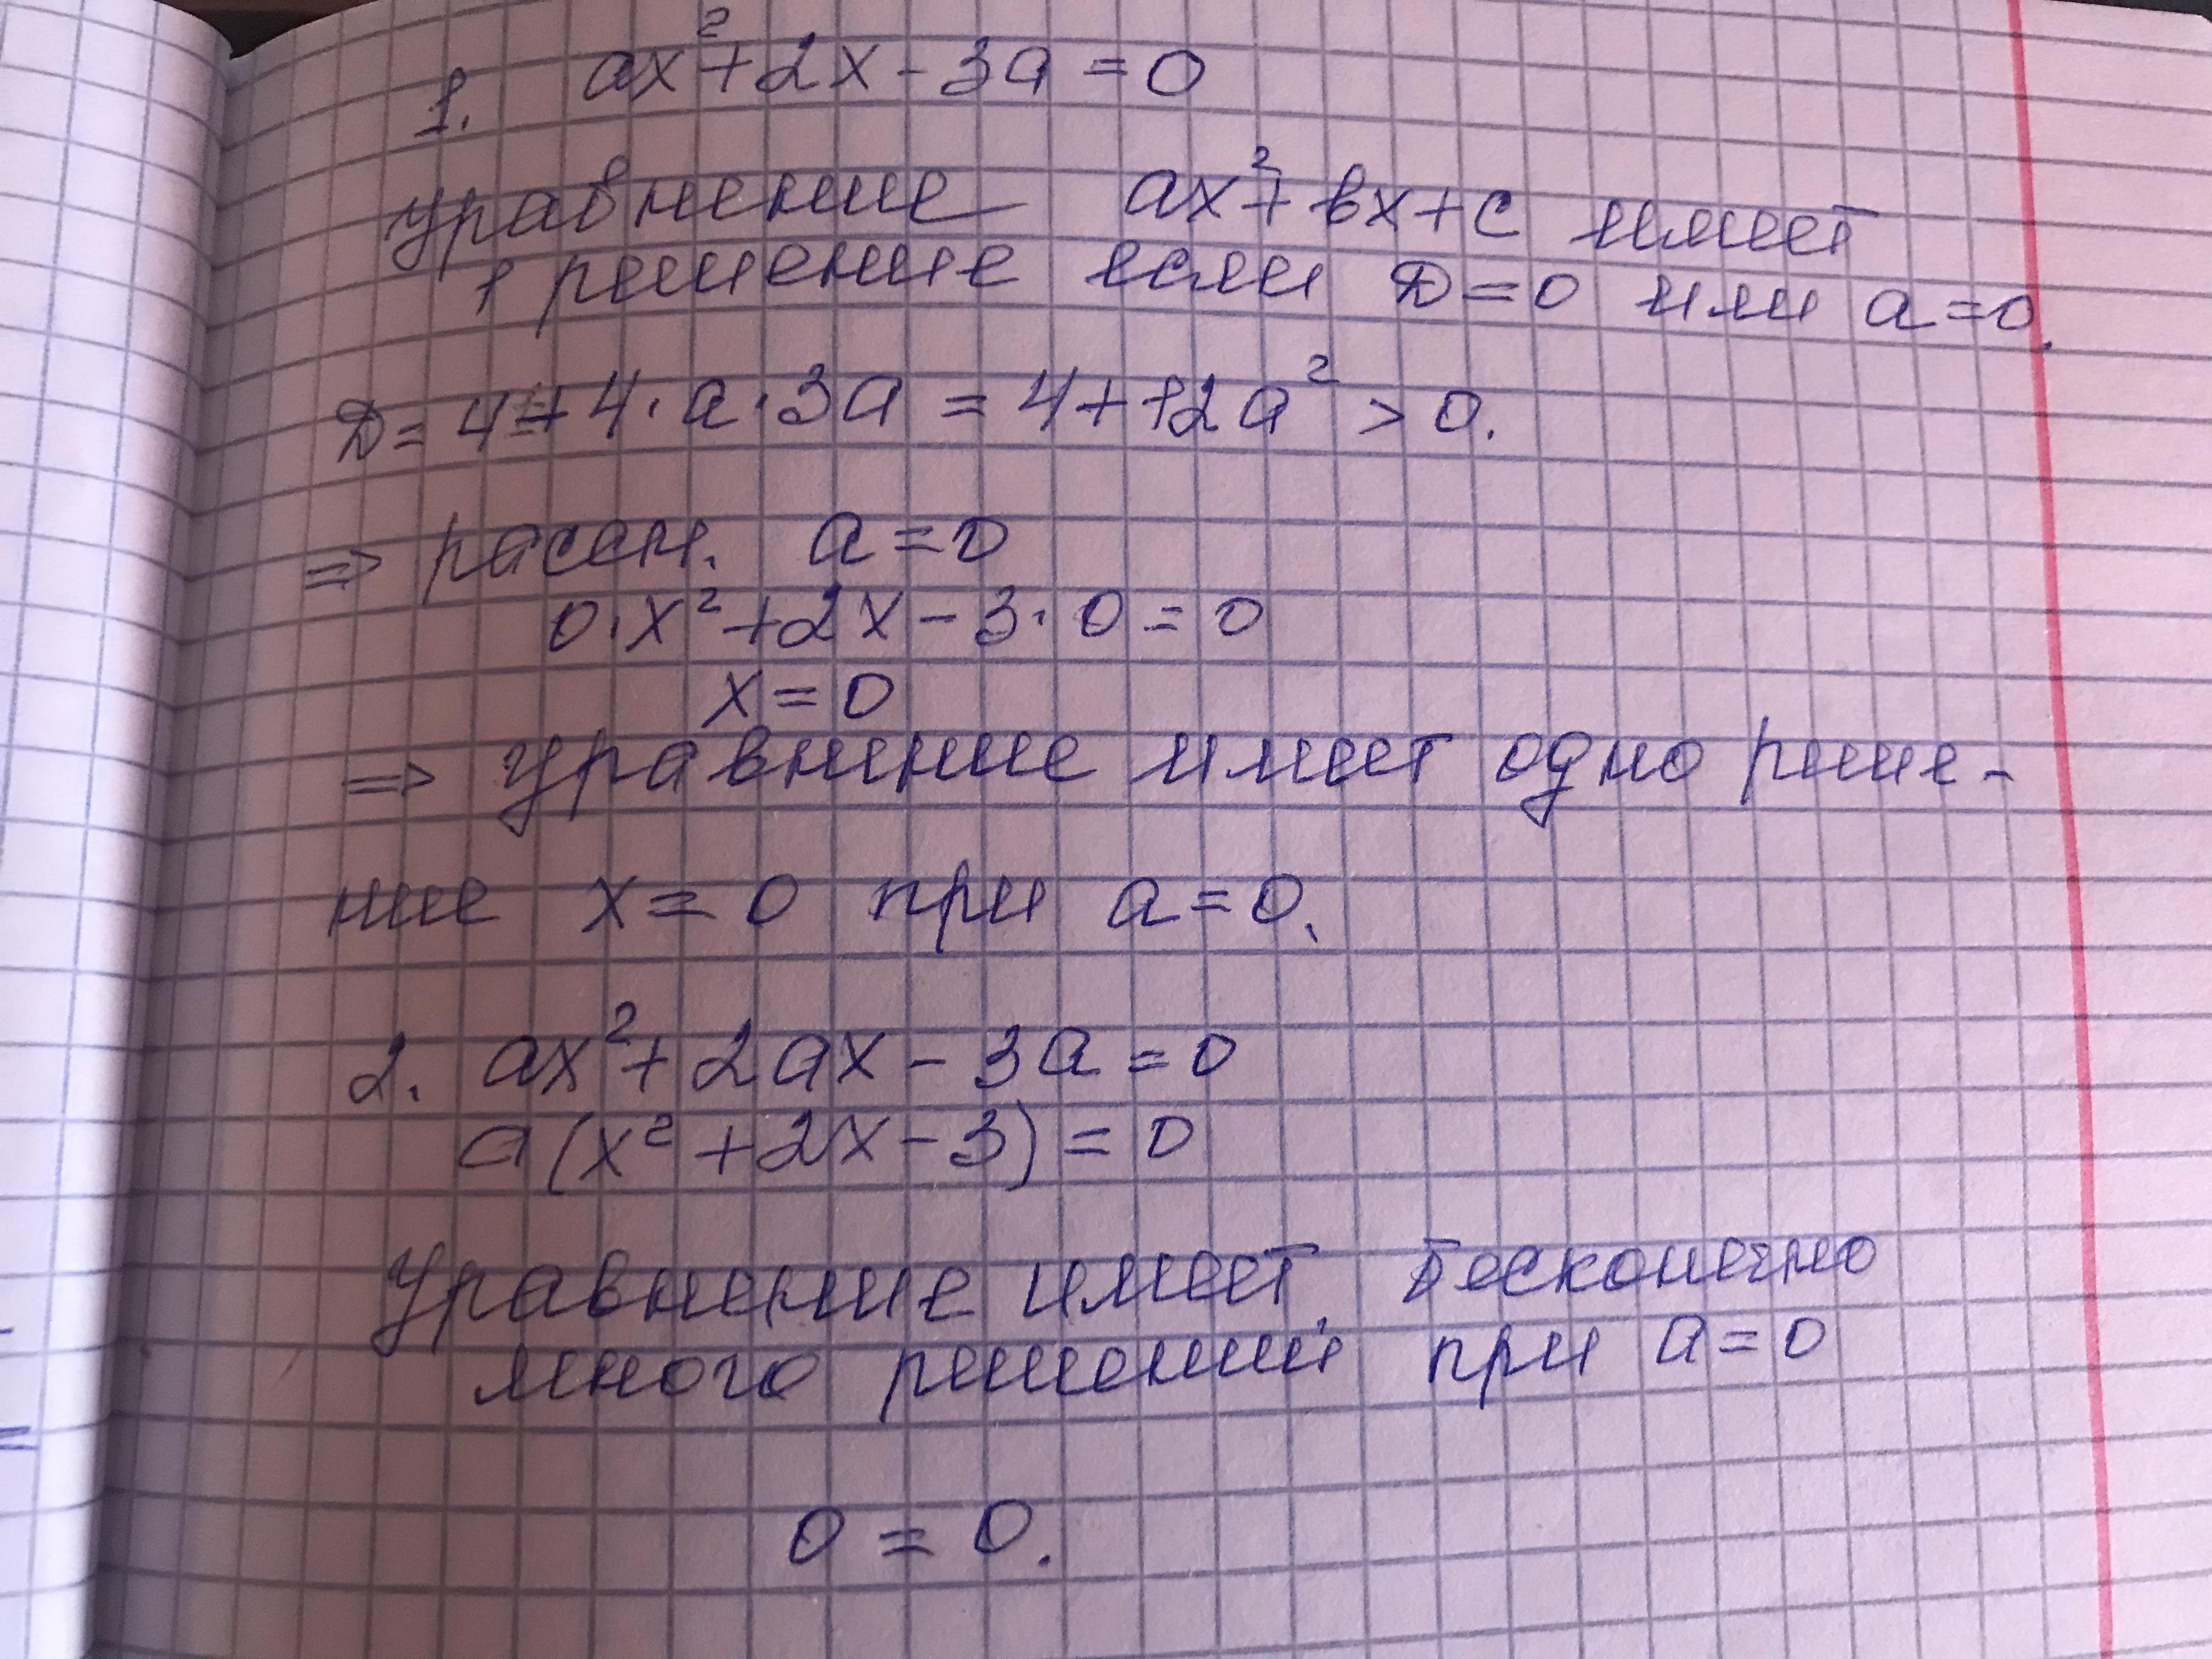 1. ax²+2x-3a=0
уравнение ax²+bx+c имеет
1 решение если D=0 или a=0.
D=4+4·a·3a=4+12a²>0.
=> рассм. a=0
0·x²+2x-3·0=0
x=0
=> уравнение имеет одно реше-
ние x=0 при a=0.
2. ax²+2ax-3a=0
a(x²+2x-3)=0
Уравнение имеет бесконечно
много решений при a=0
0=0.